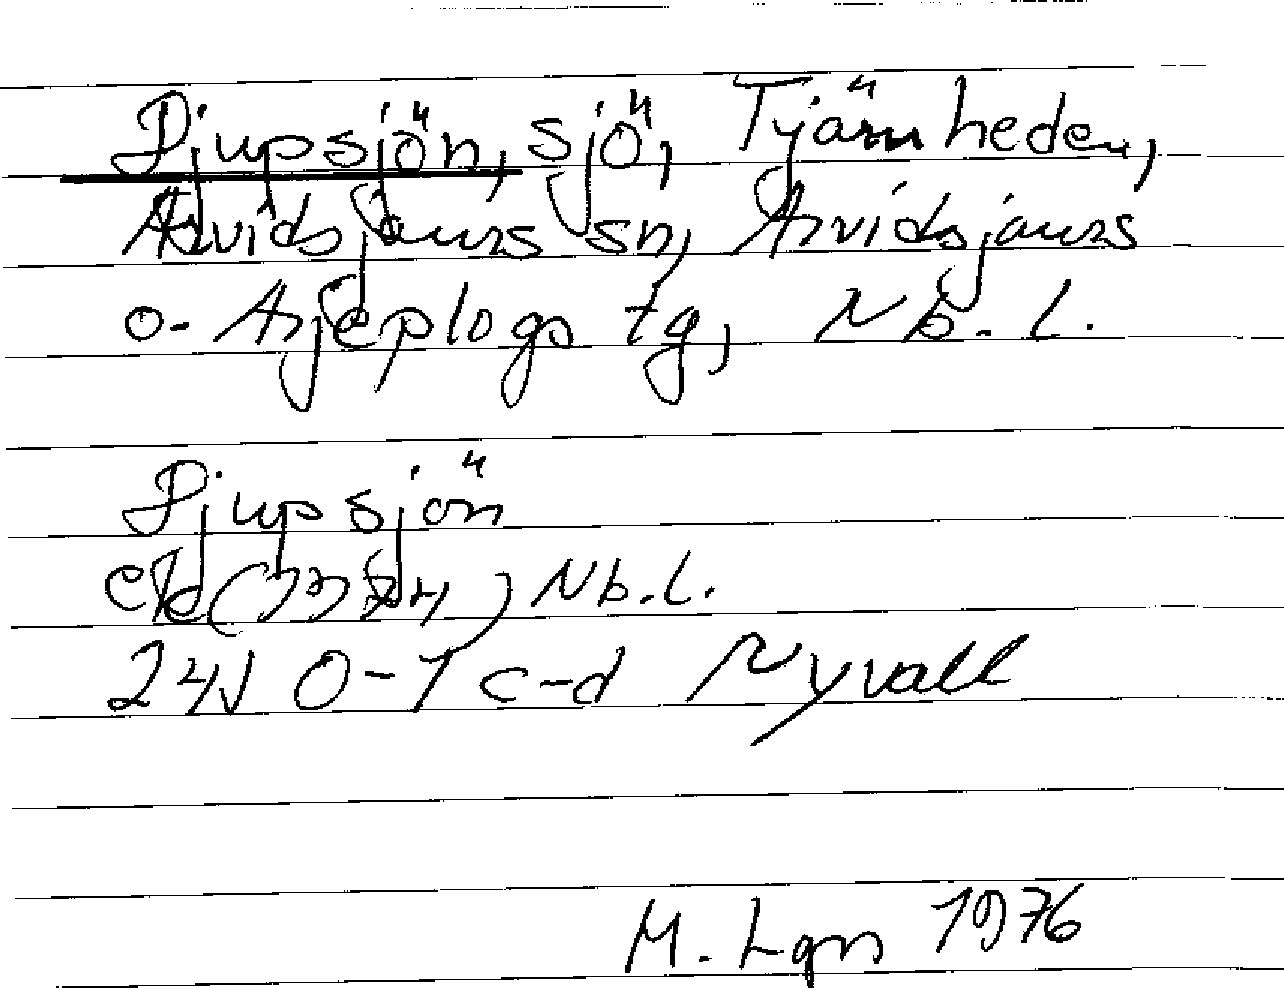 Djupsjön, sjö, Tjärnheden,
Arvidsjaurs sn, Arvidsjaurs
o. Arjeplogs tg, Nb. l.
Djupsjön
Nb. l.
24J 0-1 c-d Nyvall
M. Lgn 1976